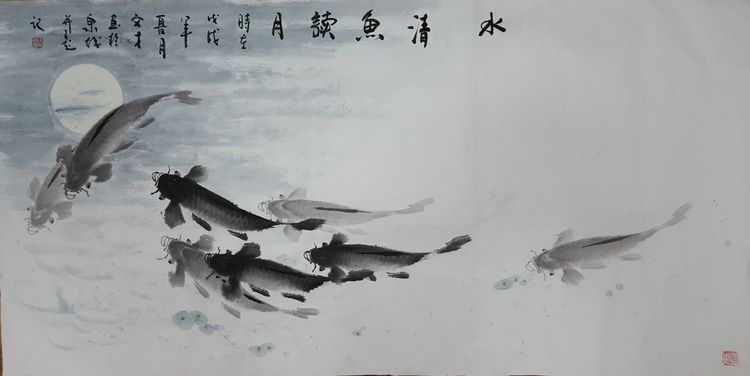 水清魚讀月
時在
戊戌
年
夏月
文才
畫於
泉城
并題
記